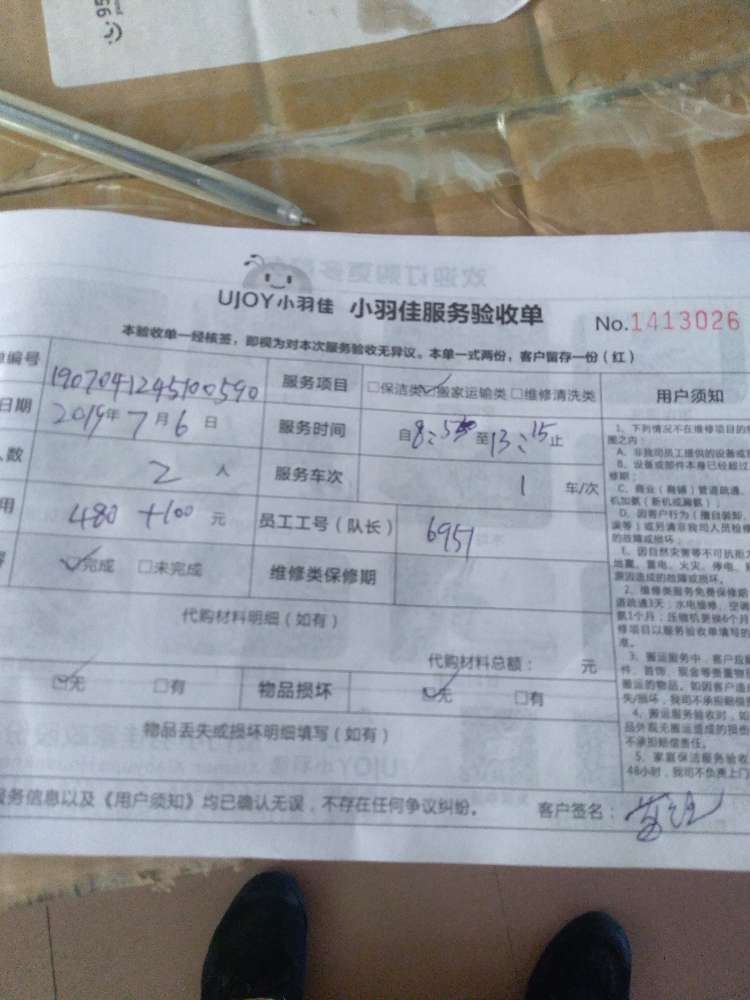 UJOY小羽佳 小羽佳服务验收单 No.1413026
本验收单一经核签，即视为对本次服务验收无异议。本单一式两份，客户留存一份（红）
单编号 1907041245100590 服务项目 □保洁类 ☑搬家运输类 □维修清洗类 用户须知
日期 2019年7月6日 服务时间 自8:5 至13:15止
人数 2人 服务车次 1 车/次
用 480+100元 员工工号（队长） 6951
☑完成 □未完成 维修类保修期
代购材料明细（如有）
代购材料总额： 元
☑无 □有 物品损坏 ☑无 □有
物品丢失或损坏明细填写（如有）
服务信息以及《用户须知》均已确认无误，不存在任何争议纠纷。 客户签名：
1、下列情况不在维修项目的
围之内：
A、非我司员工提供的设备或
B、设备或部件本身已经超过
修期；
C、商业（商铺）管道疏通、
机加氨（新机或漏氨）
D、因客户行为（擅自装卸、
误等）或另请非我司人员检修
的故障或损坏；
E、因自然灾害等不可抗拒
地震、雷电、火灾、停电、
原因造成的故障或损坏。
2、维修类服务免费保修期
道疏通3天；水电维修、空调
氨1个月；压缩机更换6个月
修项目以服务验收单填写的
准。
3、搬运服务中，客户应
件、首饰、现金等贵重物
搬运的物品。如因客户
失/损坏，我司不承担赔偿
4、搬运服务验收时，如
品外观无搬运造成的损
不承担赔偿责任。
5、家庭保洁服务验收
48小时，我司不负责上门